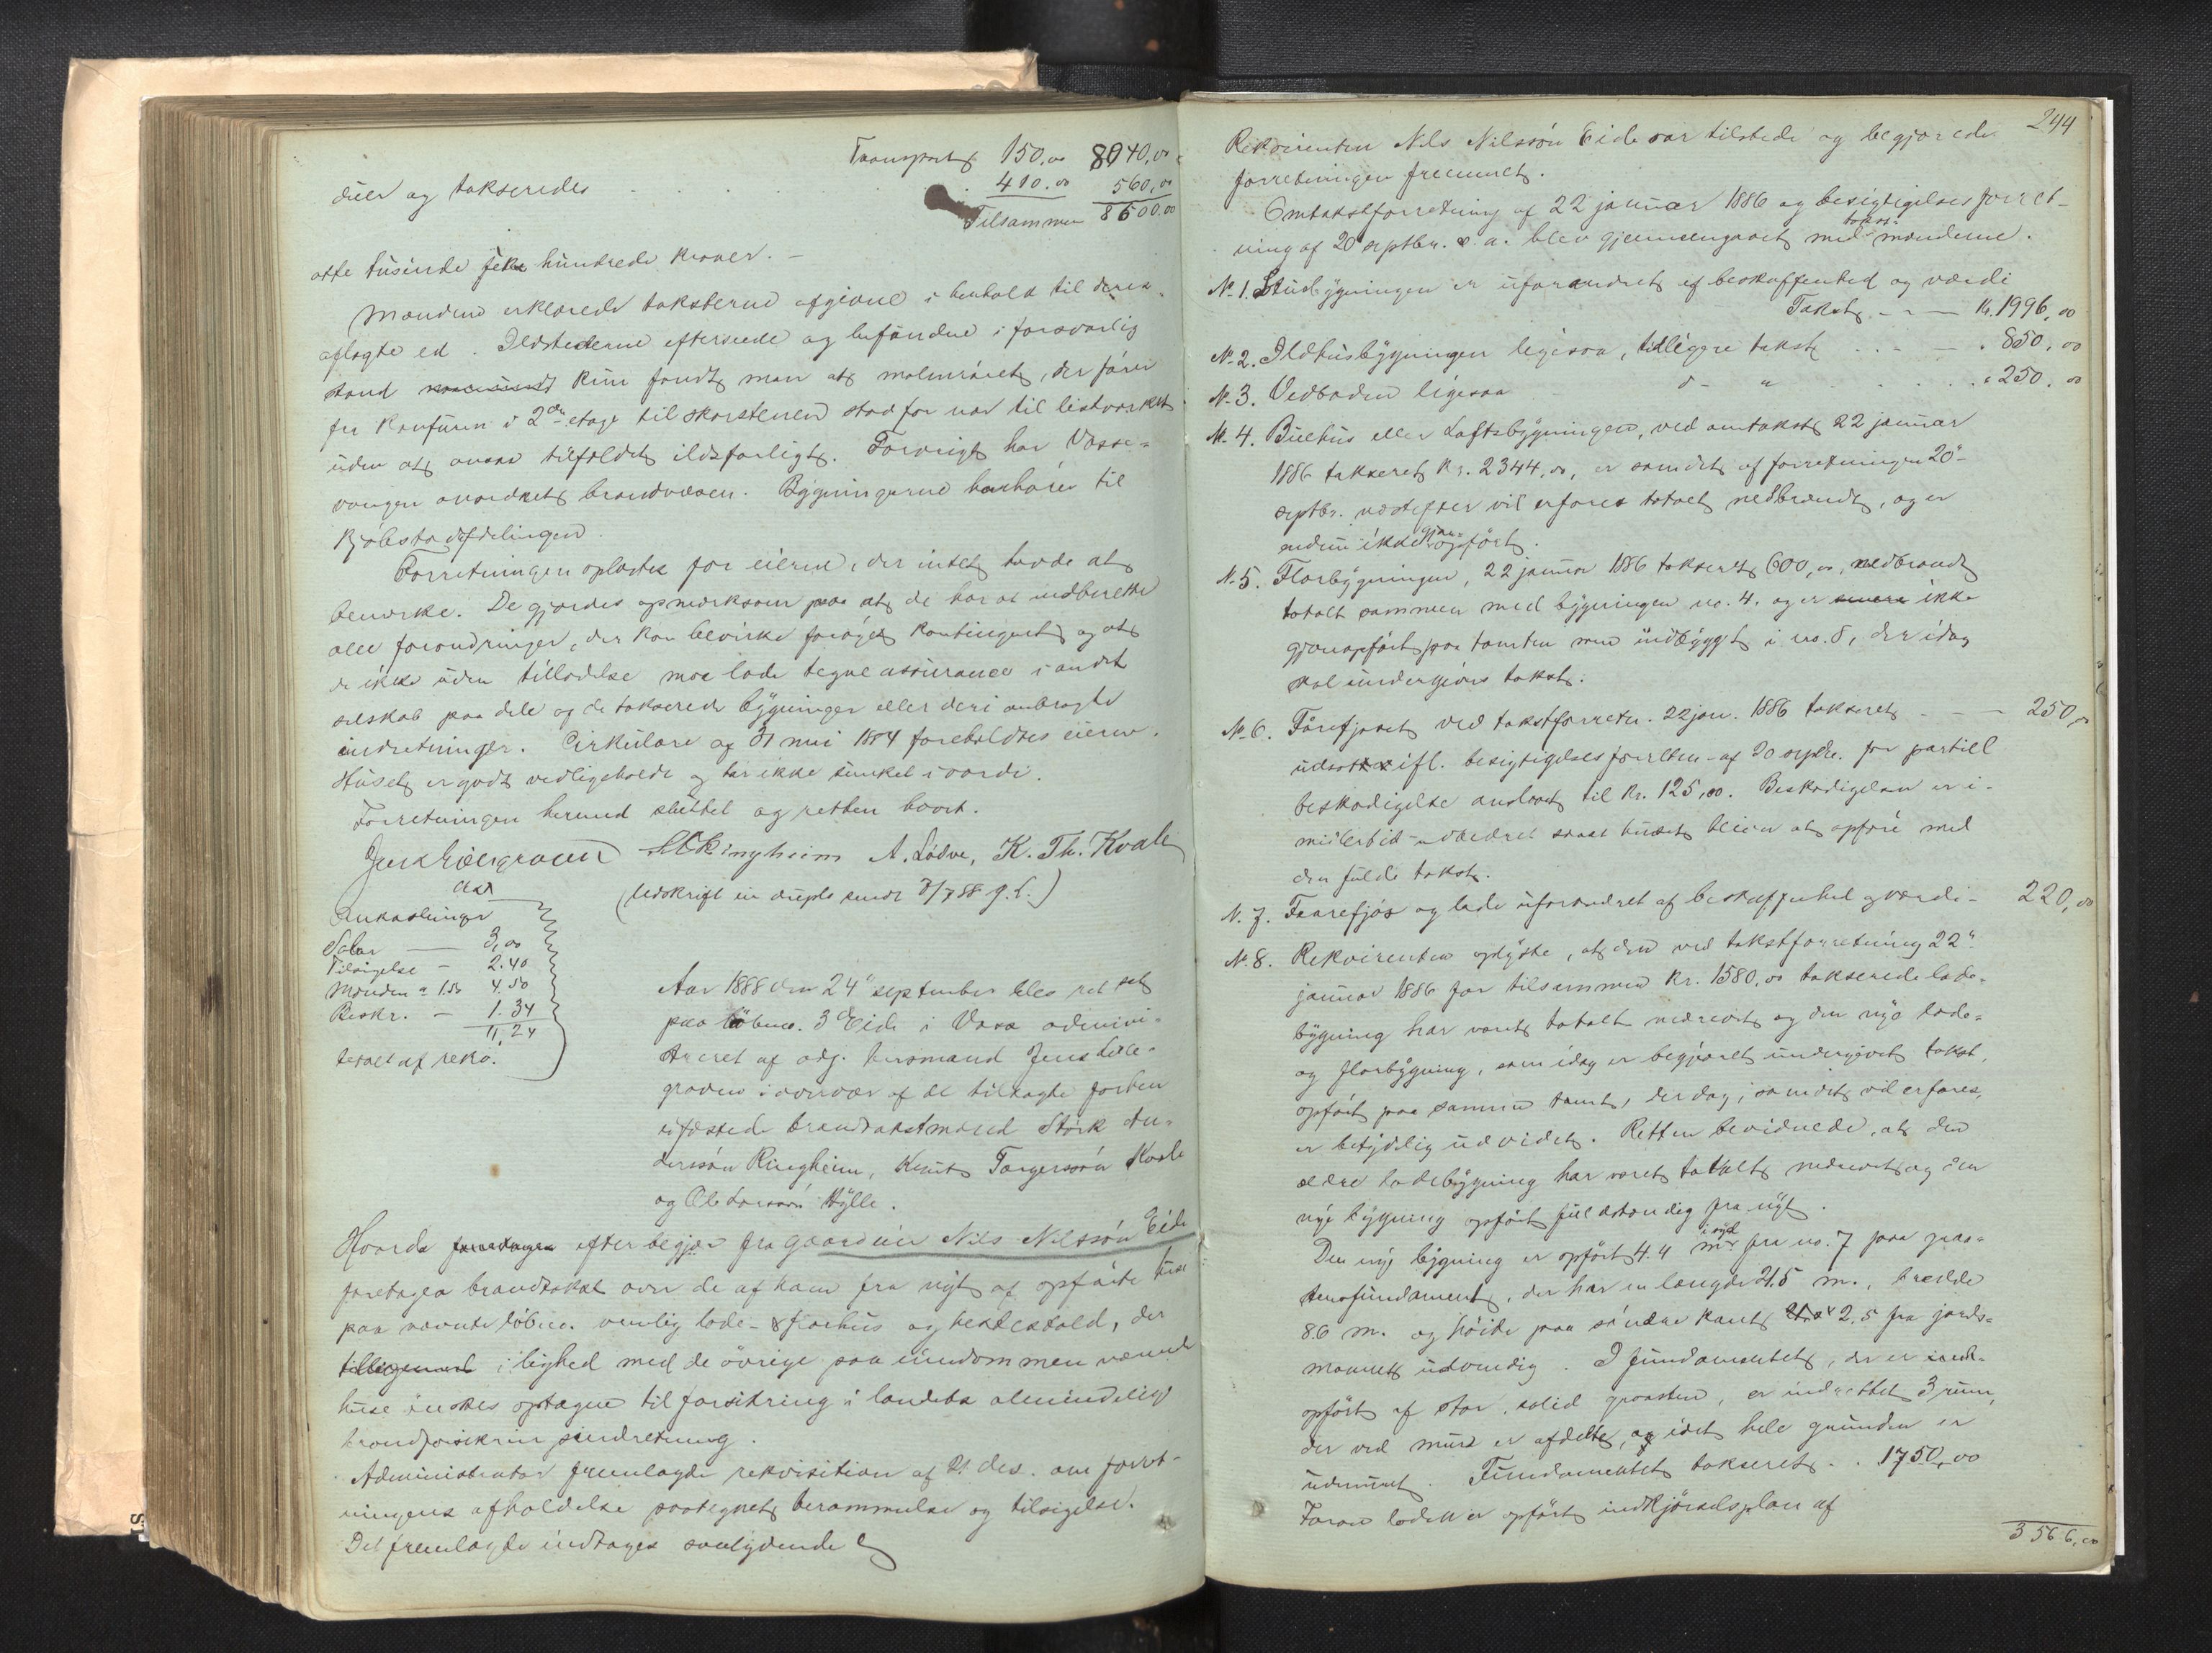 Transport 150,00 8040,00
duer og takseredes . . . . . 410.00 560,00
Tilsammen 8600.00
otte tusinde seks hundrede kroner. –
Mændene erklærede taksterne afgivne i henhold til deres
aflagte ed. Ildstederne efterseede og befundne i forsvarlig
stand kun fandt man at malmröret, der förer
fra kanfuren i 2den etage til skorstenen stod for nær til listværket
uden at ansees tilfældet ildsfarligt. Forövrigt har Vosse-
vangen anordnet brandvæsen. Bygningerne henhörer til
Kjöbstadafdelingen.
Forretningen oplæstes for eierne, der intet havde at
bemærke. De gjordes opmærksom paa at de har at indberette
alle forandringer, der kan bevirke foröget kontingent og at
de ikke uden tilladelse maa lade tegne assurance i andet
selskab paa dele af de takserede bygninger eller deri anbragte
indretninger. Cirkulære af 31 mai 1884 foreholdtes eierne.
Huset er godt vedligeholdt og har ikke sunket i værdi.
Forretningen hermed sluttet og retten hævet.
Jens Lidegraven S A Ringheim A. Lödve, K. Th. Kvale
ast (Udskrift in duplo sendt 3/7 88 J. L.)
Omkostninger
Salær — 3,00
Tilsigelse – 2.40
Mænden a 1.50 4.50
Beskr. – 1.34
11,24
betalt af rekv.
Aar 1888 den 24de september blev ret sat
paa löbeno. 3 d Eide i Voss admini-
streret af adj. lensmand Jens Lide-
graven i overvær af de tilsagte forhen
edfæstede brandtakstmænd Störk An-
derssön Ringheim, Knut Torgerssön Kvale
og Ole Larssön Gjelle.
Hvorda foretages efter begjær fra gaardeier Nils Nilssön Eide
foretages brandtakst over de af ham fra nyt af opförte huse
paa nævnte löbeno. nemlig lade- & florhus og hestestald, der
tilligemed i lighed med de övrige paa eiendommen værende
huse önskes optagne til forsikring i landets almindelige
brandforsikrings indretning.
Administrator fremlagde rekvisition af 21 ds. om forret-
ningens afholdelse paategnet berammelse og tilsigelse.
Det fremlagte indtages saalydende
244
Rekvirenten Nils Nilssön Eide var tilstede og begjærede
forretningen fremmet.
Omtakstforretning af 22 januar 1886 og besigtigelsesforret-
ning af 20 septbr. s. a. blev gjennemgaaet med takst-mændene.
No. 1. Stuebygningen er uforandret af beskaffenhed og værdi
Takst – – — Kr. 1996,00
No. 2. Ildhusbygningen ligesaa, tidligere takst . . — . 850,00
No. 3. Vedboden ligesaa d– " . . . . " 250.00
No. 4. Buehus eller Loftsbygningen, ved omtakst 22 januar
1886 takseret Kr. 2344,00, er som det af forretningen 20de
septbr. næstefter vil erfares totalt nedbrændt, og er
endnu ikke gjen-opfört.
No. 5. Florbygningen, 22 januar 1886 takseret 600,00, nedbrændt
totalt sammen med bygningen no. 4. og er ikke
gjenopfört paa tomten men indbygget i no. 8, der idag
skal undergives takst.
No. 6. Fårefjøset ved takstforretn. 22 jan. 1886 takseret – – – 250,00
udsattes ifl. besigtigelsesforretn. af 20 septbr. for partiell
beskadigelse anslaaet til Kr. 125,00. Beskadigelsen er i-
midlertid udbedret saa at huset bliver at opföre med
den fulde takst.
No. 7. Faarefjös og lade uforandret af beskaffenhed og værdi – 220,00
No. 8. Rekvirenten oplyste, at den ved takstforretning 22de
januar 1886 for tilsammen Kr. 1580,00 takserede lade-
bygning har været totalt nedrevet og den nye lade-
og florbygning, som idag er begjæret undergivet takst,
opfört paa samme tomt, der dog, som det vil erfares,
er betydelig udvidet. Retten bevidnede, at den
ældre ladebygning har været totalt nedrevet og den
nye bygning opfört fuldstændig fra nyt.
Den nye bygning er opfört 4.4 m i syd fra no. 7 paa graa-
stensfundament, der har en længde 21.5 m., bredde
8.6 m. og höide paa söndre kant 2,5 fra jords-
monnet udvendig. I fundamentet, der er
opfört af stor, solid graasten, er indrettet 3 rum,
der ved mur er afdelte, og idet hele grunden er
udmuret. Fundamentet takseret . . 1750,00
Foran laden er opfört indkjörselsplan af
3566,00